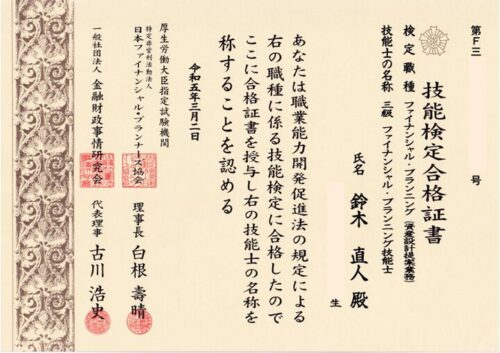 第F三
号
技能検定合格証書
検定職種 ファイナンシャル・プランニング(資産設計提案業務)
技能士の名称 三級 ファイナンシャル・プランニング技能士
氏名 鈴木 直人 殿
生
あなたは職業能力開発促進法の規定による
右の職種に係る技能検定に合格したので
ここに合格証書を授与し右の技能士の名称を
称することを認める
令和五年三月二日
厚生労働大臣指定試験機関
特定非営利活動法人
日本ファイナンシャル・プランナーズ協会
理事長 白根 壽晴
一般社団法人 金融財政事情研究会
代表理事 古川 浩史